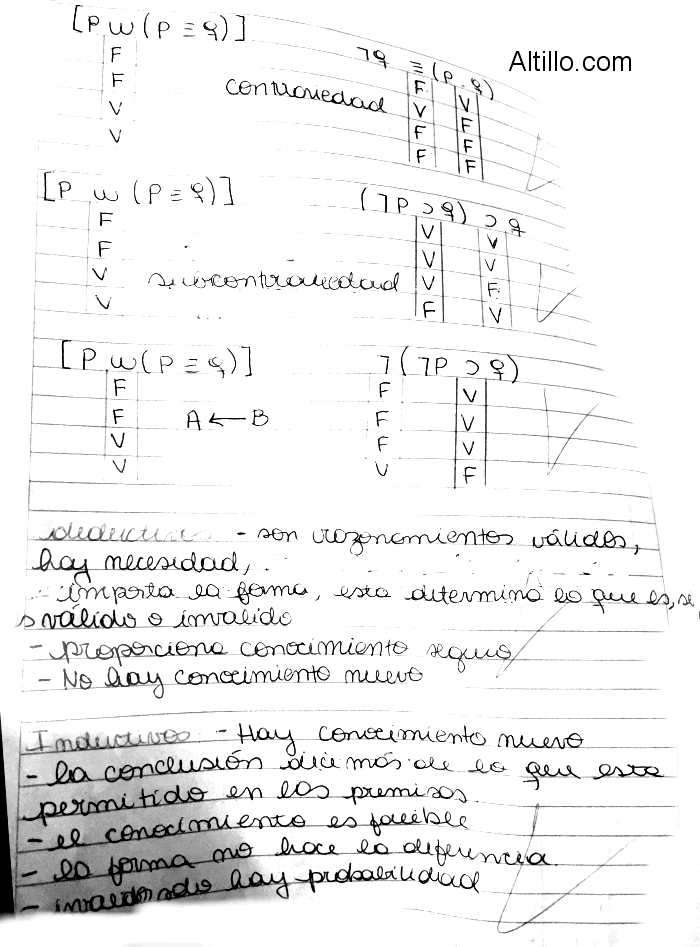 [P w (P ≡ q)]
F
F
V
V
contrariedad
7q ≡ (P . q)
F V
V F
F F
F F
Altillo.com
[P w (P ≡ q)]
F
F
V
V
subcontrariedad
(7P ⊃ q) ⊃ q
V V
V V
V F
F V
[P w (P ≡ q)]
F
F
V
V
A ← B
7 (7P ⊃ q)
F V
F V
F V
V F
deductivos - son razonamientos válidos,
hay necesidad,
- importa la forma, esta determina lo que es, se
válido o invalido
- proporciona conocimiento seguro
- No hay conocimiento nuevo
Inductivos - Hay conocimiento nuevo
- la conclusión dice más de lo que esta
permitido en las premisas.
- el conocimiento es falible
- la forma no hace la diferencia.
- hay probabilidad